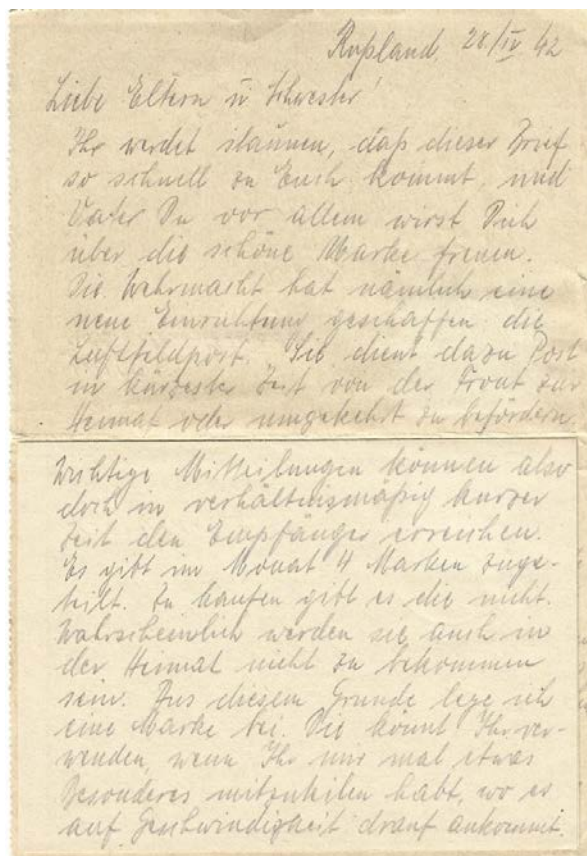 Rußland, 28./IV 42
Liebe Eltern u. Schwester!
Ihr werdet staunen, daß dieser Brief
so schnell zu Euch kommt, und
Vater Du vor allem wirst Dich
über die schöne Marke freuen.
Die Wehrmacht hat nämlich eine
neue Einrichtung geschaffen die
Luftfeldpost. Sie dient dazu Post
in kürzester Zeit von der Front zur
Heimat oder umgekehrt zu befördern.
Wichtige Mitteilungen können also
doch in verhältnismäßig kurzer
Zeit den Empfänger erreichen.
Es gibt im Monat 4 Marken zuge-
teilt. Zu kaufen gibt es die nicht.
Wahrscheinlich werden sie auch in
der Heimat nicht zu bekommen
sein. Aus diesem Grunde lege ich
eine Marke bei. Die könnt Ihr ver-
wenden, wenn Ihr mir mal etwas
Besonderes mitzuteilen habt, wo es
auf Geschwindigkeit drauf ankommt.